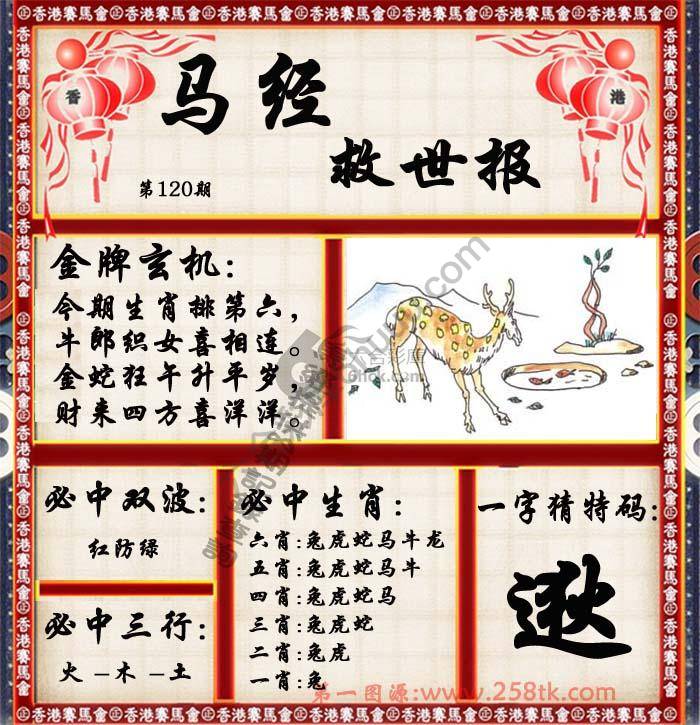 香港賽馬會
香 港
马经
救世报
第120期
金牌玄机:
今期生肖排第六，
牛郎织女喜相连。
金蛇狂午升平岁，
财来四方喜洋洋。
必中双波:
红防绿
必中三行:
火-木-土
必中生肖:
六肖:兔虎蛇马牛龙
五肖:兔虎蛇马牛
四肖:兔虎蛇马
三肖:兔虎蛇
二肖:兔虎
一肖:兔
一字猜特码:
逖
第一图源:www.258tk.com